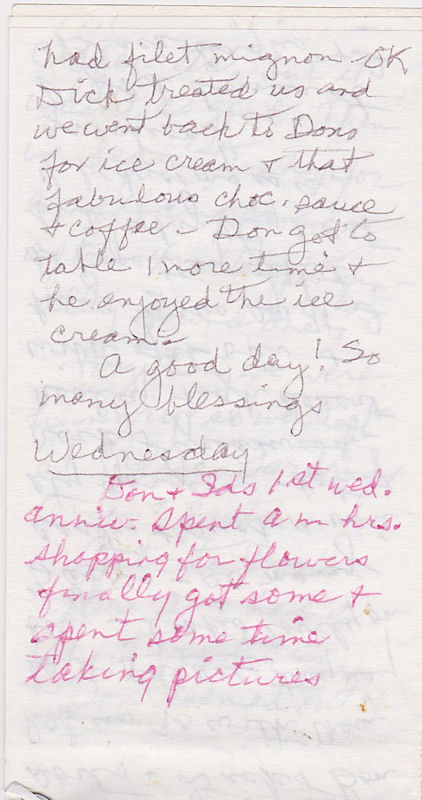 had filet mignon - OK
Dick treated us and
we went back to Dons
for ice cream + that
fabulous choc. sauce
+ coffee - Don got to
table 1 more time +
he enjoyed the ice
cream -
A good day! So
many blessings
Wednesday
Don + Ida's 1st wed.
anniv. Spent a m hrs.
shopping for flowers
finally got some +
spent some time
taking pictures